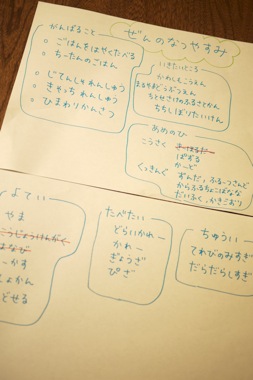 ぜんのなつやすみ
がんばること
○ ごはんをはやくたべる
○ ちーたんのごはん
○ じてんしゃれんしゅう
○ きゃっちれんしゅう
○ ひまわりかんさつ
いきたいところ
まるやまどうぶつえん
ちとせさけのふるさとかん
あめのひ
こうさく
ぱずる
かーど
くっきんぐ
ずんだ、ふるーつさんど
からふるちょこばなな
だいふく、かきごおり
よてい
やま
こうじょうけんがく
たべたい
どらいかれー
かれー
ぎょうざ
ぴざ
ちゅうい
てれびのみすぎ
だらだらしすぎ